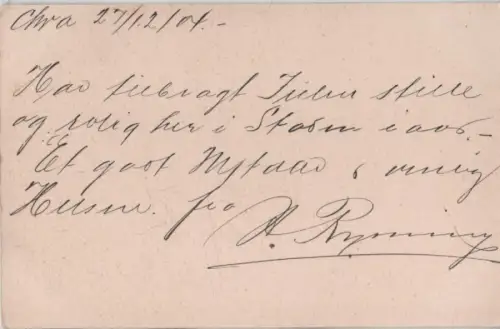 Chra 27/12/04.-
Har tilbragt Julen stille
og rolig her i Staden i aar.-
Et godt Nytaar & venlig
Hilsen. fra
H. Ryning